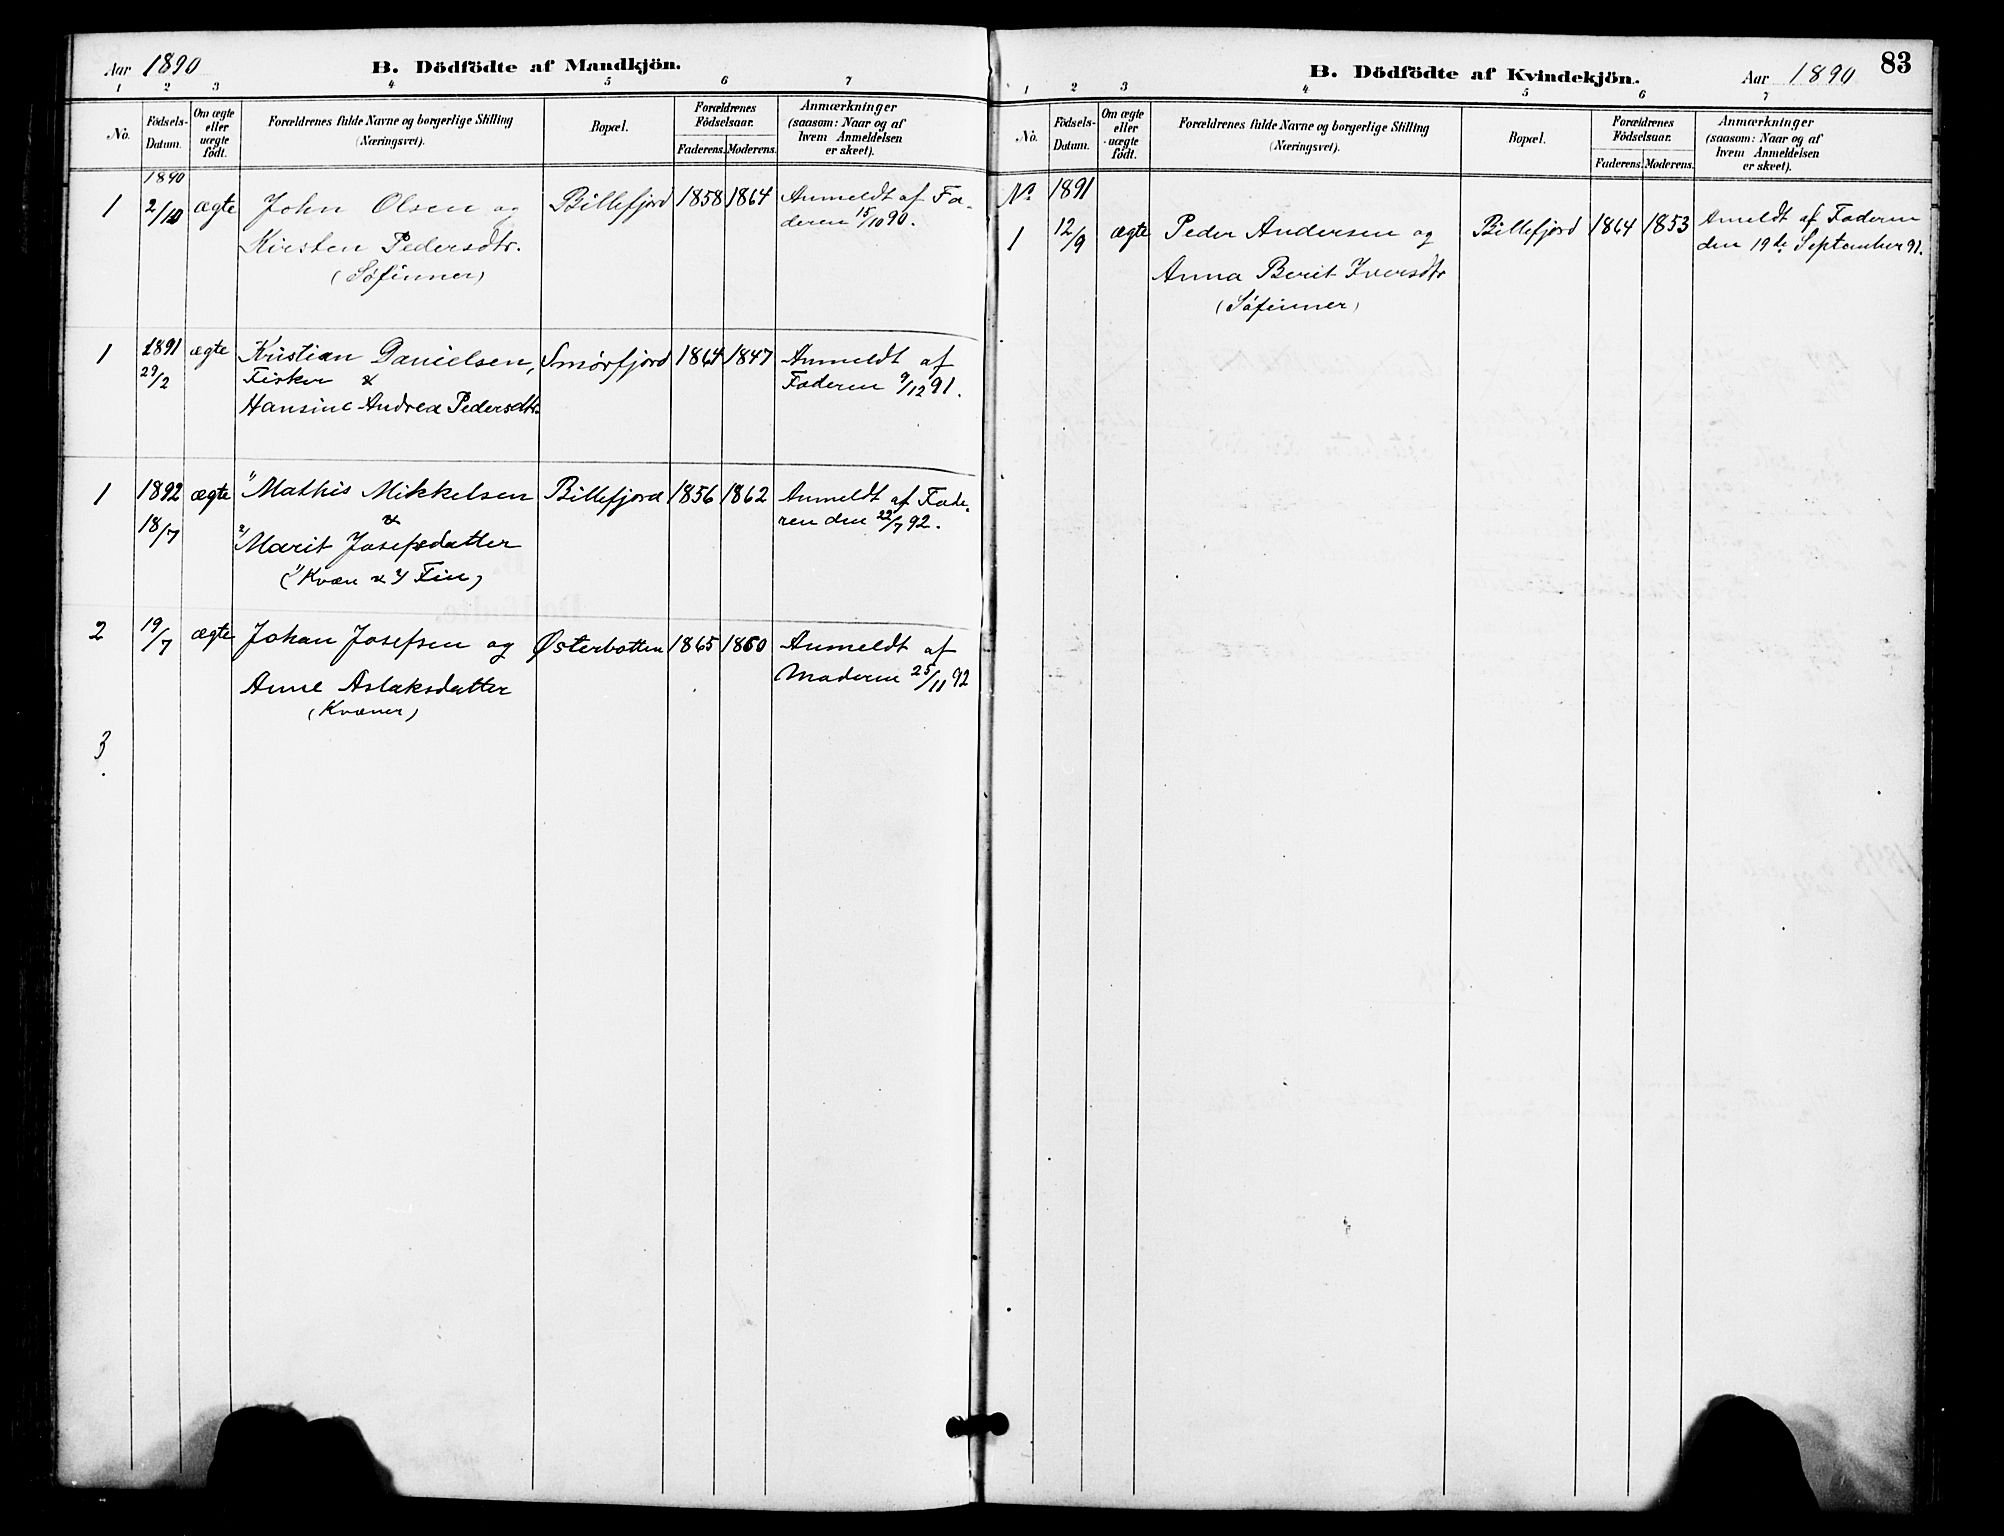 Aar 1890 B. Dödfödte af Mandkjön.
1 2 3 4 5 6 7
No. Födsels-Datum. Om ægte eller uægte födt. Forældrenes fulde Navne og borgerlige Stilling (Næringsvei). Bopæl. Forældrenes Födselsaar. Faderens. Moderens. Anmærkninger (saasom: Naar og af hvem Anmeldelsen er skeet).
1890
1 2/10 ægte John Olsen og Billefjord 1858 1864 Anmeldt af Fa-
Kirsten Pedersdtr. deren 15/10 90.
(Søfinner)
1 1891 ægte Kristian Danielsen, Smørfjord 1864 1847 Anmeldt af
29/2 Fisker & Faderen 9/12 91.
Hansine Andrea Pedersdtr.
1 1892 ægte 1) Mathis Mikkelsen Billefjord 1856 1862 Anmeldt af Fade-
18/7 & ren den 22/7 92.
2) Marit Josefsdatter
(1) Kvæn & 2) Fin)
2 19/7 ægte Johan Josefsen og Østerbotten 1865 1860 Anmeldt af
Anne Aslaksdatter Moderen 25/11 92
(Kvæner)
3
B. Dödfödte af Kvindekjön. Aar 1890 83
1 2 3 4 5 6 7
No. Födsels-Datum. Om ægte eller uægte födt. Forældrenes fulde Navne og borgerlige Stilling (Næringsvei). Bopæl. Forældrenes Födselsaar. Faderens. Moderens. Anmærkninger (saasom: Naar og af hvem Anmeldelsen er skeet).
No 1891
1 12/9 ægte Peder Andersen og Billefjord 1864 1853 Ameldt af Faderen
Anna Berit Iversdtr den 19de September 91.
(Søfinner)